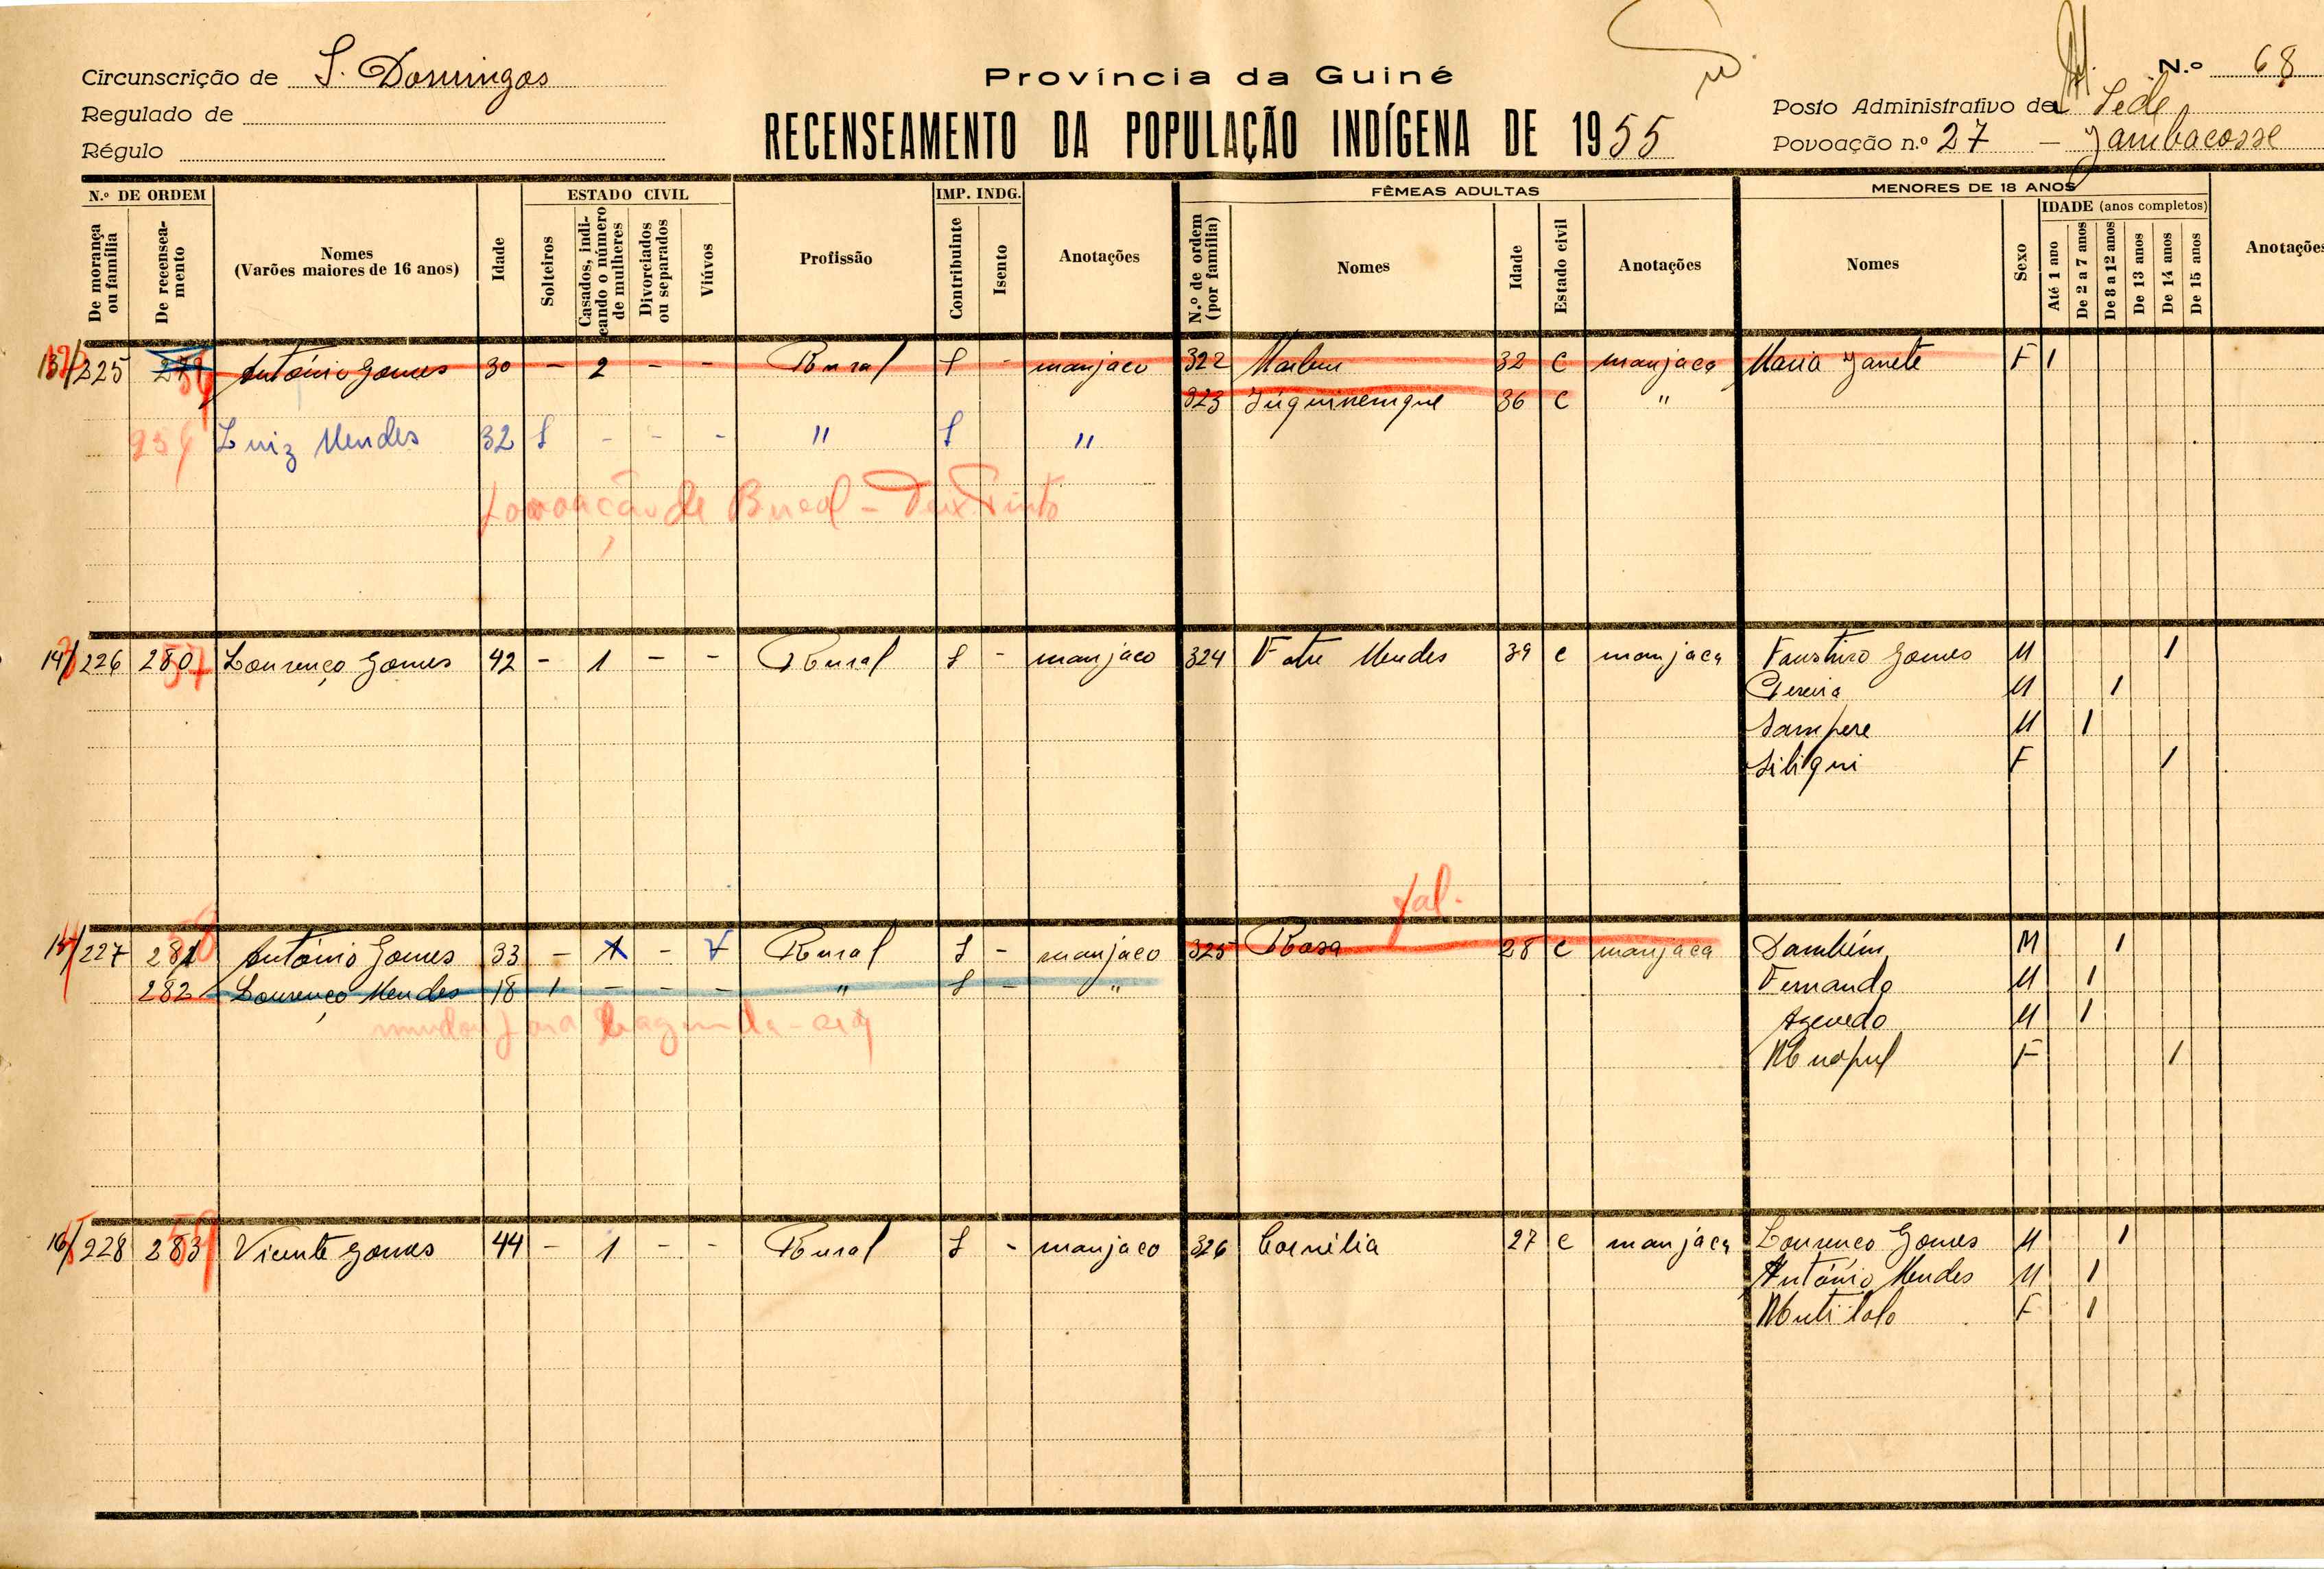 Circunscrição de S. Domingos
Regulado de
Régulo
Província da Guiné
RECENSEAMENTO DA POPULAÇÃO INDÍGENA DE 1955
N.º 68
Posto Administrativo de Sede
Povoação n.º 27 - Jambacosse
N.º DE ORDEM
De morança ou família
De recenseamento
Nomes
(Varões maiores de 16 anos)
Idade
ESTADO CIVIL
Solteiros
Casados, indicando o número de mulheres
Divorciados ou separados
Viúvos
Profissão
IMP. INDG.
Contribuinte
Isento
Anotações
FÊMEAS ADULTAS
N.º de ordem (por família)
Nomes
Idade
Estado civil
Anotações
MENORES DE 18 ANOS
Nomes
Sexo
IDADE (anos completos)
Até 1 ano
De 2 a 7 anos
De 8 a 12 anos
De 13 anos
De 14 anos
De 15 anos
Anotações
13/225 279 António Gomes 30 - 2 - - Rural 1 - manjaco 322 32 C manjaca Maria Janete F 1
323 36 C "
Luiz Mendes 32 1 - - - " 1 "
Povoação de Bucol - Teix. Pinto
14/226 280 57 Lourenço Gomes 42 - 1 - - Rural 1 - manjaco 324 Mendes 39 C manjaca Faustino Gomes M 1
Pereira M 1
Sampere M 1
Siliqui F 1
fal.
15/227 281 58 António Gomes 33 - 1 - Rural 1 - manjaco 325 Rosa 28 C manjaca Dambém M 1
282 Lourenço Mendes 18 1 - - - " 1 - " Fernando M 1
Azevedo M 1
F 1
16/228 283 59 Vicente Gomes 44 - 1 - - Rural 1 - manjaco 326 Cornélia 27 C manjaca Lourenço Gomes M 1
António Mendes M 1
F 1